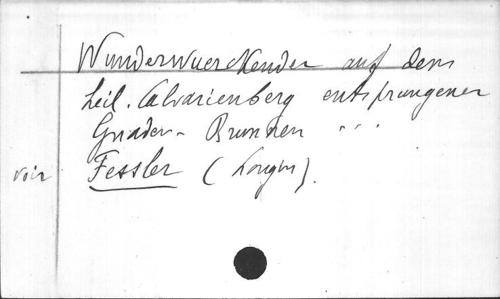 Wunderwuerckender auf dem
heil. Calvarienberg entsprungener
Gnaden-Brunnen ...
voir Fessler (Longin).